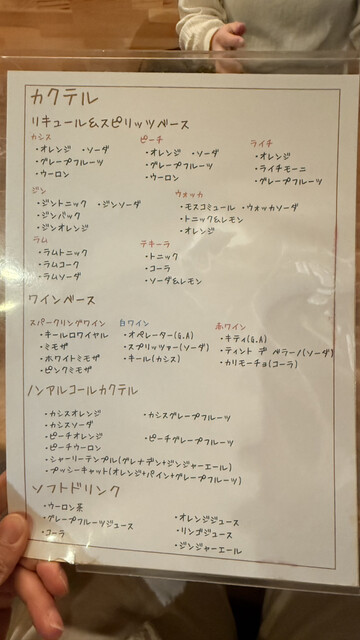 カクテル
リキュール&スピリッツベース
カシス
・オレンジ ・ソーダ
・グレープフルーツ
・ウーロン
ピーチ
・オレンジ ・ソーダ
・グレープフルーツ
・ウーロン
ライチ
・オレンジ
・ライチモーニ
・グレープフルーツ
ジン
・ジントニック ・ジンソーダ
・ジンバック
・ジンオレンジ
ウォッカ
・モスコミュール ・ウォッカソーダ
・トニック&レモン
・オレンジ
ラム
・ラムトニック
・ラムコーク
・ラムソーダ
テキーラ
・トニック
・コーラ
・ソーダ&レモン
ワインベース
スパークリングワイン
・キールロワイヤル
・ミモザ
・ホワイトミモザ
・ピンクミモザ
白ワイン
・オペレーター(G.A)
・スプリッツァー(ソーダ)
・キール(カシス)
赤ワイン
・キティ(G.A)
・ティント デ ベラーノ(ソーダ)
・カリモーチョ(コーラ)
ノンアルコールカクテル
・カシスオレンジ
・カシスグレープフルーツ
・カシスソーダ
・ピーチオレンジ
・ピーチグレープフルーツ
・ピーチウーロン
・シャーリーテンプル(グレナデン+ジンジャーエール)
・プッシーキャット(オレンジ+パイン+グレープフルーツ)
ソフトドリンク
・ウーロン茶
・グレープフルーツジュース
・コーラ
・オレンジジュース
・リンゴジュース
・ジンジャーエール